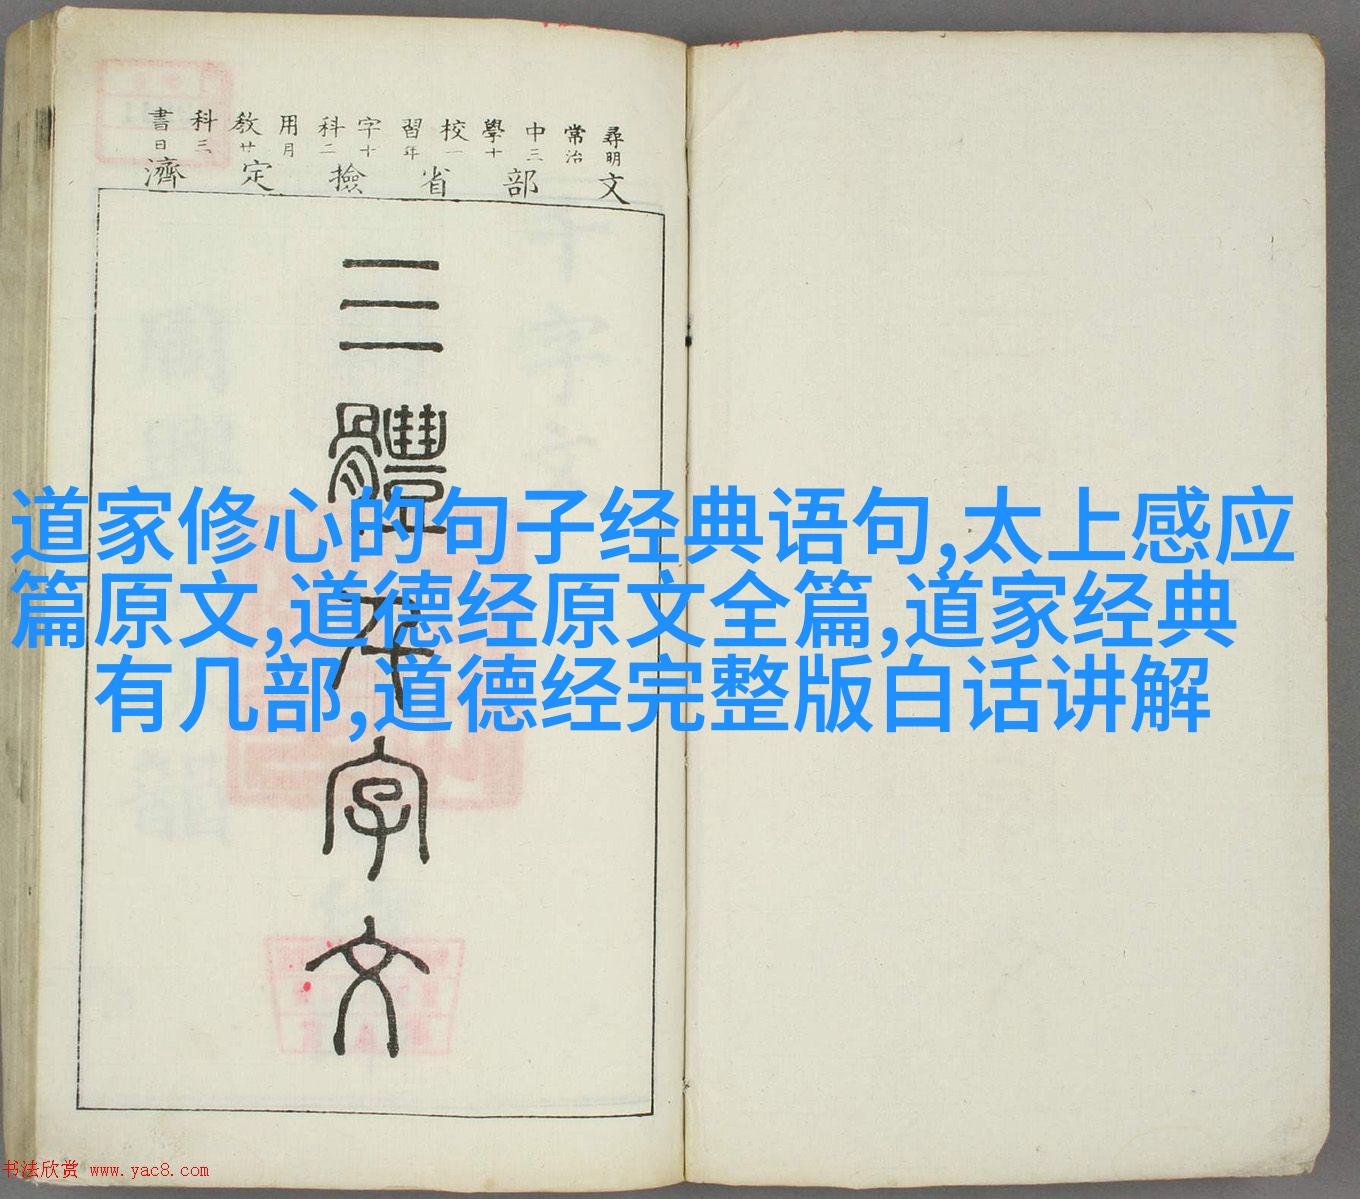 尋常中學校習字科用教科書
明治三十一年十二月廿三日
文部省撿定濟
三體千字文
道家修心的句子经典语句,太上感应
篇原文,道德经原文全篇,道家经典
有几部,道德经完整版白话讲解
书法欣赏 www.yac8.com